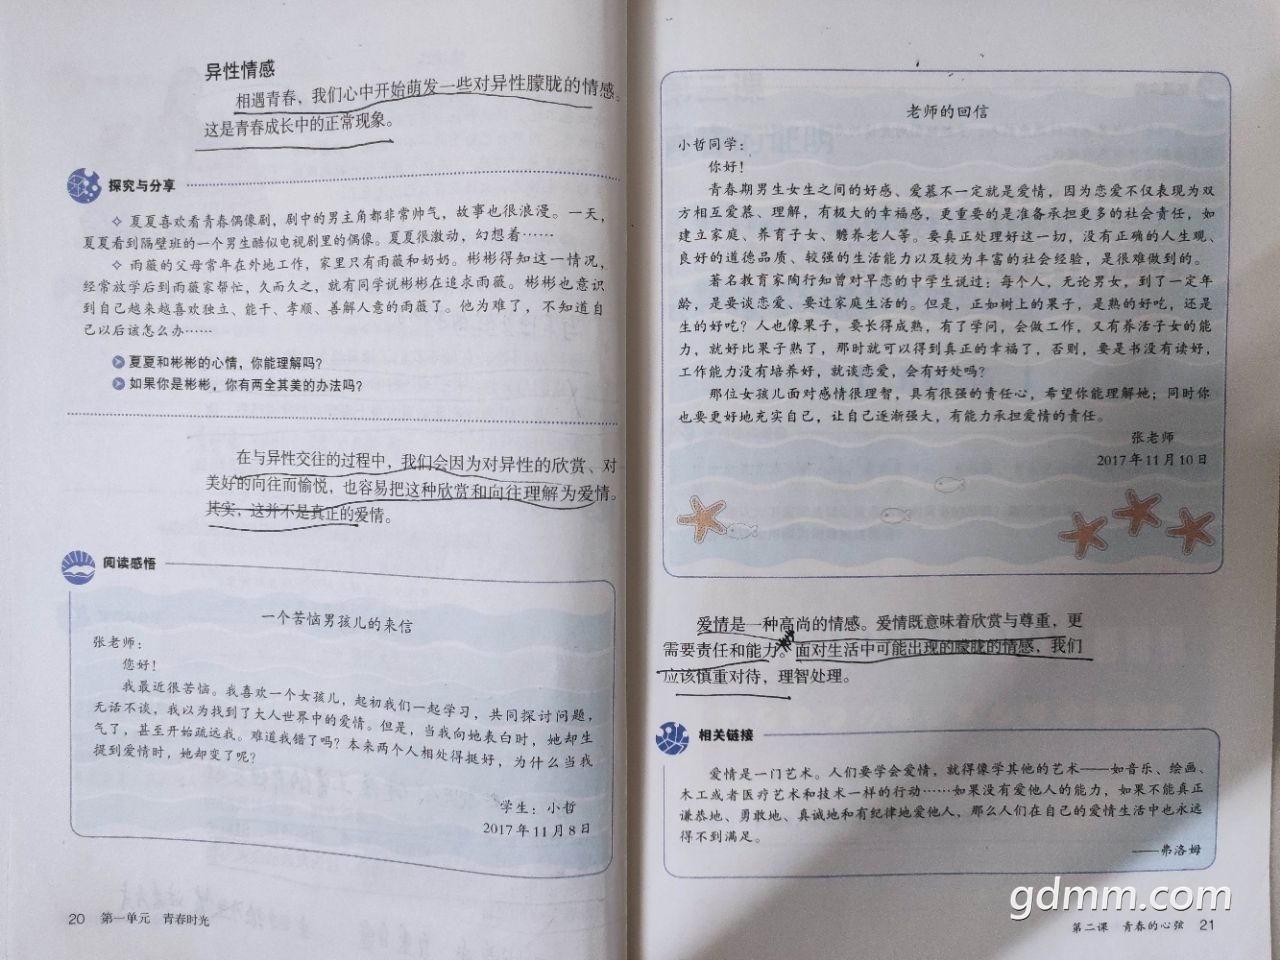 异性情感
相遇青春，我们心中开始萌发一些对异性朦胧的情感。
这是青春成长中的正常现象。
探究与分享
夏夏喜欢看青春偶像剧，剧中的男主角都非常帅气，故事也很浪漫。一天，
夏夏看到隔壁班的一个男生酷似电视剧里的偶像。夏夏很激动，幻想着……
雨薇的父母常年在外地工作，家里只有雨薇和奶奶。彬彬得知这一情况，
经常放学后到雨薇家帮忙，久而久之，就有同学说彬彬在追求雨薇。彬彬也意识
到自己越来越喜欢独立、能干、孝顺、善解人意的雨薇了。他为难了，不知道自
己以后该怎么办……
夏夏和彬彬的心情，你能理解吗？
如果你是彬彬，你有两全其美的办法吗？
在与异性交往的过程中，我们会因为对异性的欣赏、对
美好的向往而愉悦，也容易把这种欣赏和向往理解为爱情。
其实，这并不是真正的爱情。
阅读感悟
一个苦恼男孩儿的来信
张老师：
您好！
我最近很苦恼。我喜欢一个女孩儿，起初我们一起学习，共同探讨问题，
无话不谈，我以为找到了大人世界中的爱情。但是，当我向她表白时，她却生
气了，甚至开始疏远我。难道我错了吗？本来两个人相处得挺好，为什么当我
提到爱情时，她却变了呢？
学生：小哲
2017年11月8日
20 第一单元 青春时光
老师的回信
小哲同学：
你好！
青春期男生女生之间的好感、爱慕不一定就是爱情，因为恋爱不仅表现为双
方相互爱慕、理解，有极大的幸福感，更重要的是准备承担更多的社会责任，如
建立家庭、养育子女、赡养老人等。要真正处理好这一切，没有正确的人生观、
良好的道德品质、较强的生活能力以及较为丰富的社会经验，是很难做到的。
著名教育家陶行知曾对早恋的中学生说过：每个人，无论男女，到了一定年
龄，是要谈恋爱、要过家庭生活的。但是，正如树上的果子，是熟的好吃，还是
生的好吃？人也像果子，要长得成熟，有了学问，会做工作，又有养活子女的能
力，就好比果子熟了，那时就可以得到真正的幸福了，否则，要是书没有读好，
工作能力没有培养好，就谈恋爱，会有好处吗？
那位女孩儿面对感情很理智，具有很强的责任心，希望你能理解她；同时你
也要更好地充实自己，让自己逐渐强大，有能力承担爱情的责任。
张老师
2017年11月10日
爱情是一种高尚的情感。爱情既意味着欣赏与尊重，更
需要责任和能力。面对生活中可能出现的朦胧的情感，我们
应该慎重对待，理智处理。
相关链接
爱情是一门艺术。人们要学会爱情，就得像学其他的艺术——如音乐、绘画、
木工或者医疗艺术和技术一样的行动……如果没有爱他人的能力，如果不能真正
谦恭地、勇敢地、真诚地和有纪律地爱他人，那么人们在自己的爱情生活中也永远
得不到满足。
——弗洛姆
第二课 青春的心弦 21
gdmm.com